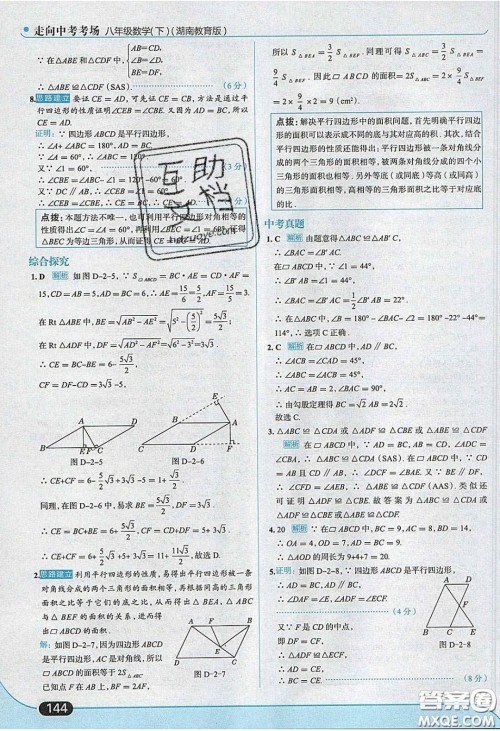 走向中考考场 八年级数学(下)(湖南教育版)
∵在△ABE 和△CDF 中,
{AB=CD,
∠B=∠D,
BE=DF,
∴△ABE≌△CDF (SAS). (6 分)
8.思路建立 要证 CE=AD, 可先证 CE=CB, 方法是通过平
行四边形的性质证明∠CBE=∠CEB. 又因为 AD=BC, 所以
CE=AD.
证明: ∵四边形 ABCD 是平行四边形,
∴∠A+∠ABC=180°, AD=BC.
∵∠A=60°, ∴∠ABC=120°.
又∵∠1=∠A=60°,
∴∠CBE=∠ABC-∠1=120°-60°=60°.
又∵DC∥AB, ∴∠CEB=∠1=60°,
∴∠CBE=∠CEB=60°,
∴CE=BC, ∴CE=AD.
点拨: 本题方法不唯一, 也可利用平行四边形对角相等的
性质得出∠C=∠A=60°, 再利用∠BEC=∠1=60°, 可得
△BEC 为等边三角形, 从而证得
综合探究
1.D 解析 如图 D-2-5, ∵S▱ABCD=BC·AE=CD·AF=
15, CD=AB=5, AD=BC=6, ∴AE=15/6=5/2, AF=3.
在 Rt△ABE 中, BE=√(AB²-AE²)=√(5²-(5/2)²)=5√3/2,
在 Rt△ADF 中, DF=√(AD²-AF²)=√(6²-3²)=3√3.
∴CE=BC-BE=6-5√3/2,
CF=DF-CD=3√3-5.
图 D-2-5
图 D-2-6
∴CE+CF=6-5/2√3+3√3-5=1+√3/2.
同理, 在图 D-2-6 中, 易求 BE=5/2√3, DF=3√3.
∴CE=6+5√3/2, CF=CD+DF=5+3√3,
∴CE+CF=6+5/2√3+5+3√3=11+11√3/2.
2.思路建立 利用平行四边形的性质, 易得出平行四边形被一条
对角线分成的两个三角形的面积相等, 再根据不同高的三角形
面积之比等于对应高的比, 从而得出△BEA, △ABC
与▱ABCD 的面积的关系, 进而得出
▱ABCD 的面积.
解: 如图 D-2-7, 因为四边形 ABCD
是平行四边形, AC 是对角线, 所以
S▱ABCD=2S△ABC.
已知点 F 在 AB 上, BF=2AF,
图 D-2-7
144
所以 S△ABE=3/2 S△BEF=3. 同理可得 S△ABC=3/2
S△ABE=3/2×3=9/2, 所以 S▱ABCD=2S△ABC=
2×9/2=9 (cm²).
点拨: 解决平行四边形中的面积问题, 首先明确平行四边
形的面积可以表示成不同的底与其对应高的积. 其次, 结合
平行四边形的性质还能得出: 平行四边形被一条对角线分
成的两个三角形的面积相等, 被两条对角线分成的四个三
角形的面积也相等. 另外等底(或同底)等高(或同
高)的三角形面积相等, 高相等的三角形面积之比等于对应底
的比.
中考真题
1.C 解析 由题意得△ABC≌△AB′C,
∴∠BAC=∠B′AC.
在▱ABCD 中, ∵∠1=44°,
∴∠BAC=∠B′AC=1/2∠B′AB=22°.
∴在△ABC 中, ∠B=180°-∠BAC-∠2=180°-22°-44°=
114°, ∴选项 C 正确.
1.C 解析 在▱ABCD 中, AD∥BC,
∴∠ACB=∠CAD=45°,
∴∠ABC=∠ACB=45°,
∴AC=AB=2, ∠BAC=90°,
∴由勾股定理得 BC=√2AB=2√2.
故选 C.
3.△ABC≌△CDA 或△ADF≌△CBE 或△ABE≌△CDF
解析 在▱ABCD 中, AB=CD, BC=AD, ∠ADC=
∠CBA, ∴△ABC≌△CDA (SAS). ∵在▱ABCD 中, AD=
CB 且 AD∥CB, ∴∠DAF=∠BCE. 又∵BE∥DF,
∴∠AFD=∠CEB, ∴△ADF≌△CBE (AAS). 类似还
可证明△ADF≌△CBE. 故答案为△ABC≌△CDA 或
△ABE≌△CDF.
4.20 解析 ∵在▱ABCD 中, BC=9, AC=8, BD=14,
∴OA=4, OD=7, AD=BC=9,
∴△AOD 的周长为 9+4+7=20.
5.证明: 如图 D-2-8, ∵四边形 ABCD 是平行四边形,
∴AD=BC, AD∥BC,
∴∠ADE=∠ECF.
(4 分)
又∵F 是 CD 的中点,
即 DF=CF,
∴△ADE≌△ECF,
∴AD=CE,
∴BC=CE. (8 分)
图 D-2-8
互助文档
hdzuoye.com
答案圈
MXQE.COM